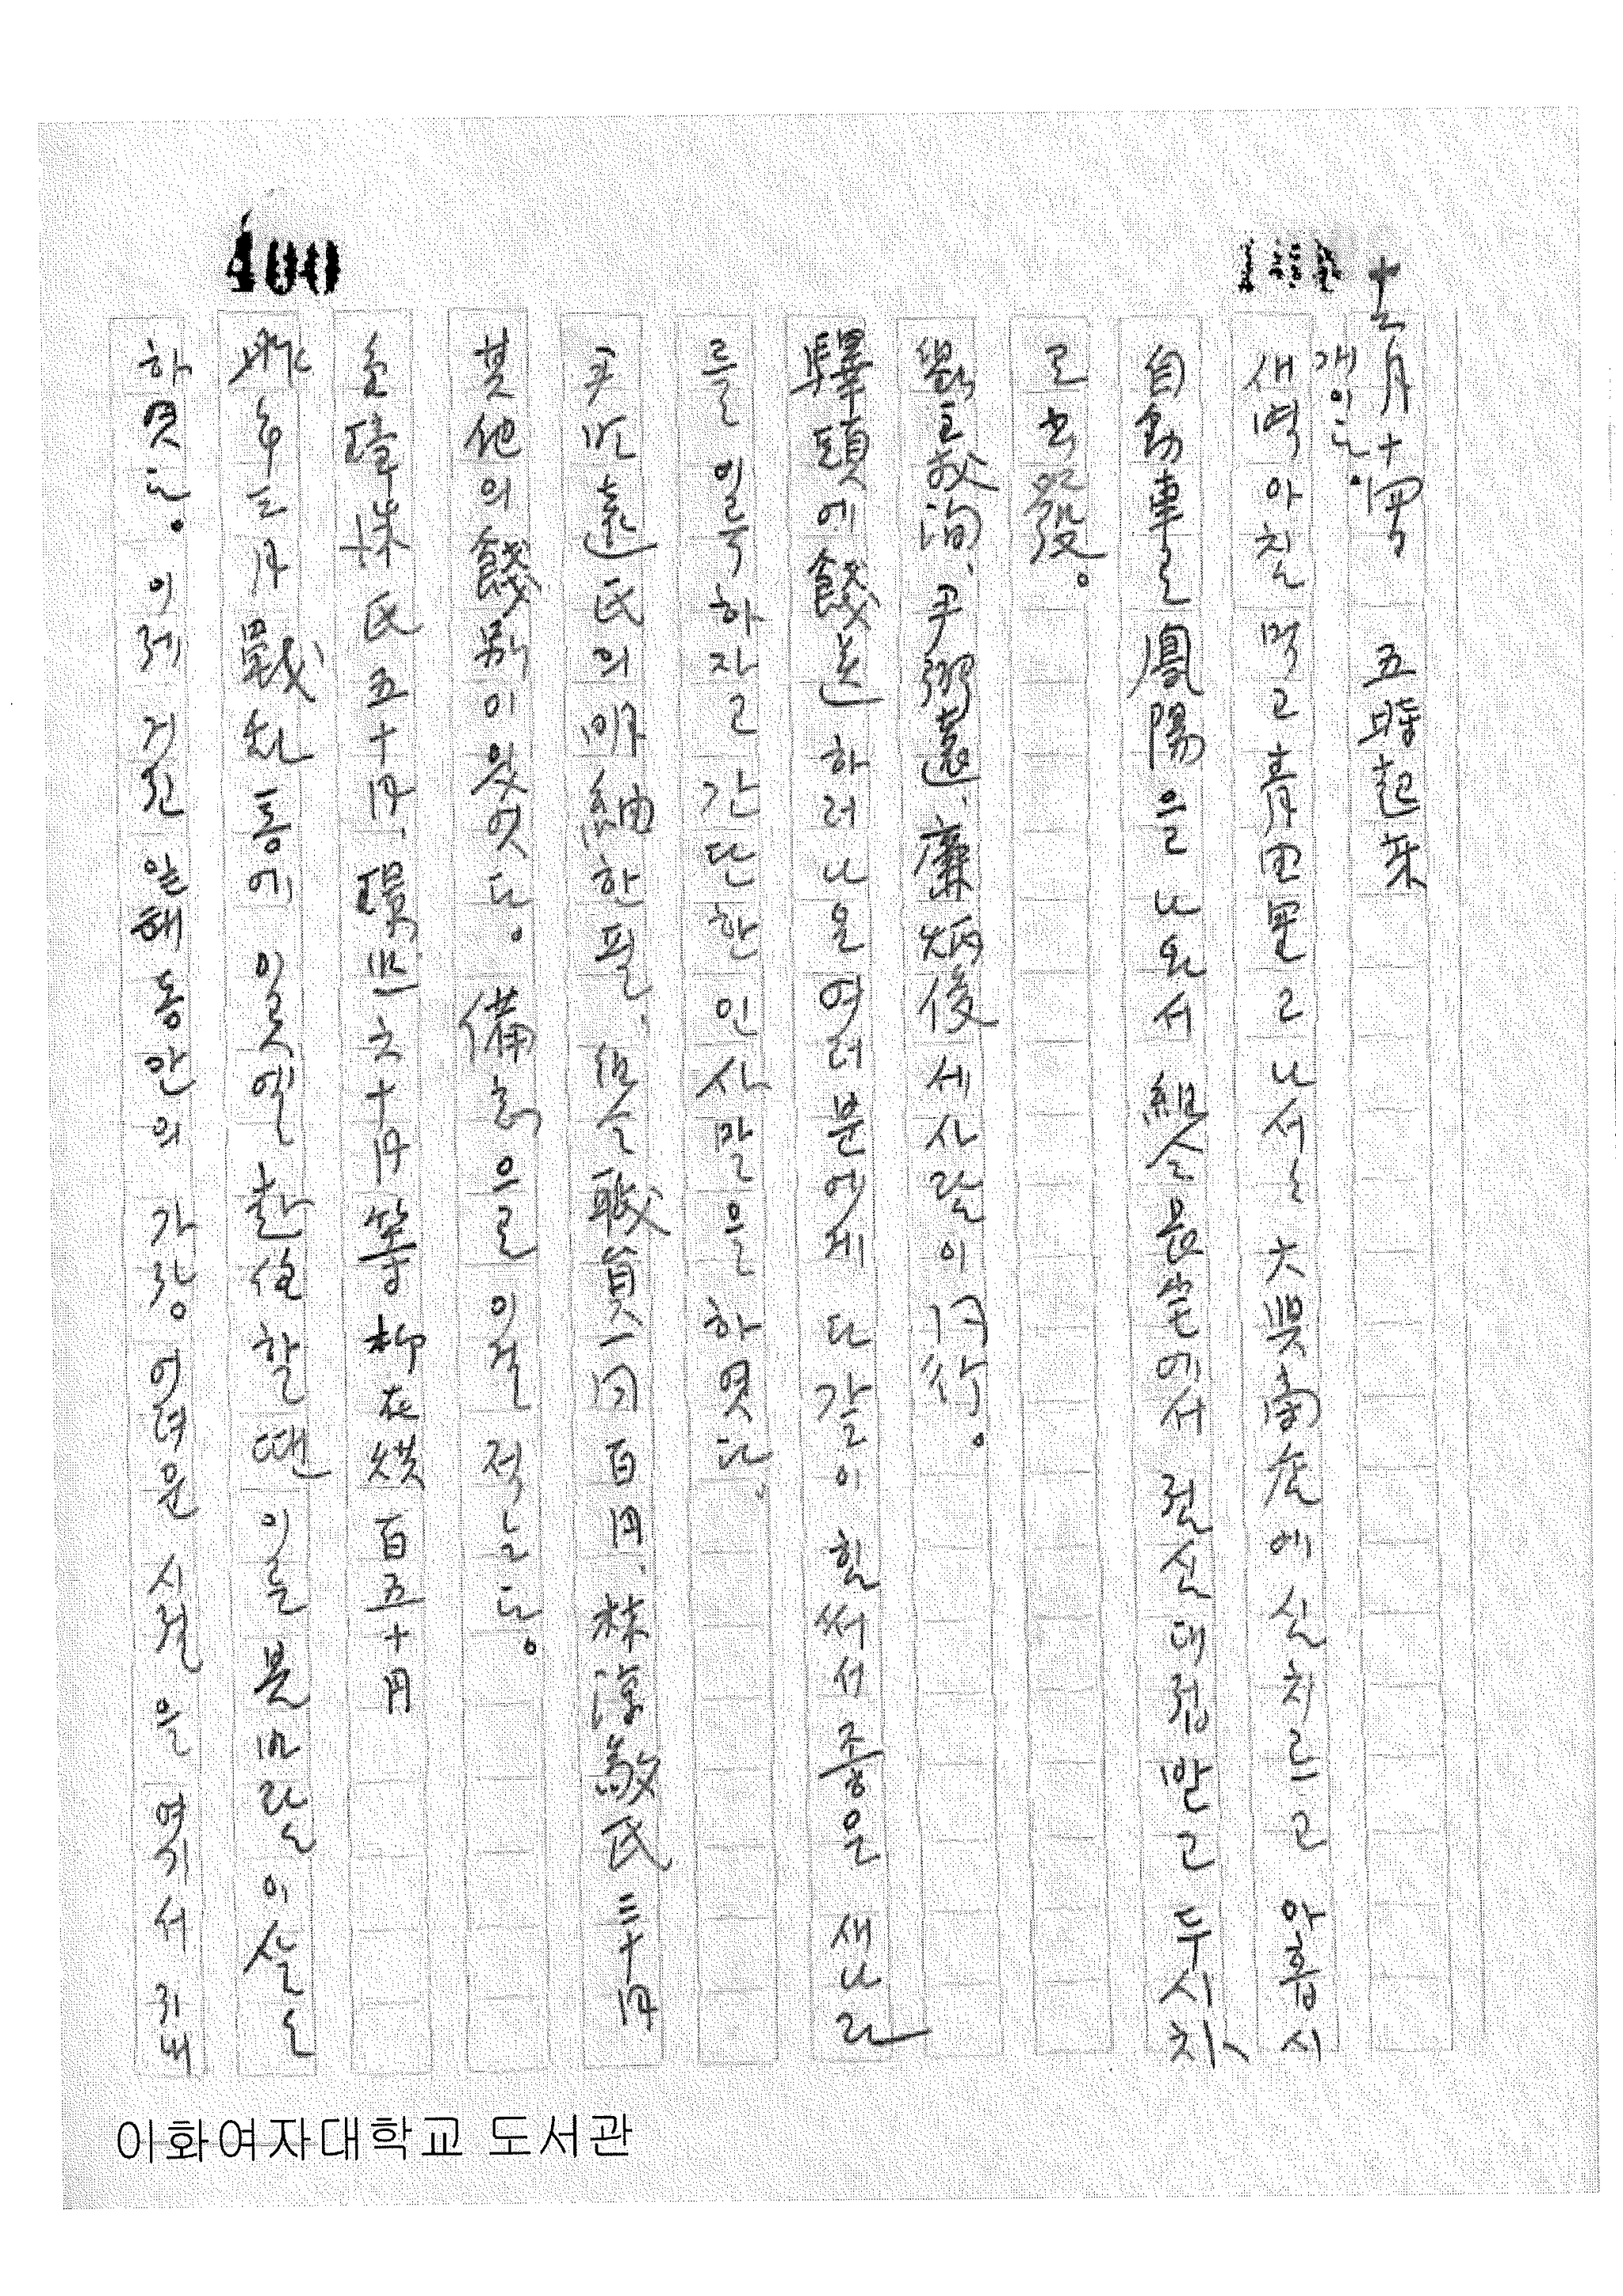 十二月十四日 五時起床
개인 날.
새벽 아침 먹고 靑田里로 나서는 大興商店에 실 차르고 아홉시
自動車로 鳳陽을 나와서 組合 에서 점심 대접 받고 두시 차
로 出發.
劉敬洵, 尹弼遠, 廉炳俊 세 사람이 同行.
驛頭에 餞送하러 나온 여러분에게 다 같이 힘써서 좋은 새 나라
를 이룩하자고 간단한 인사말을 하였다.
尹 遠氏의 明紬 한 필, 組合 職員 一同 百円, 林淳敬氏 三十円
其他의 餞別이 있었다. 備忘으로 이걸 적는다.
金璋洙氏 五十円, 六十円等 柳在 百五十円
昨年 三月 통에 이곳엘 할 땐 이를 보면
하였다. 이제 거진 일해 동안의 가장 어려운 시절을 여기서 지내
이화여자대학교 도서관
400